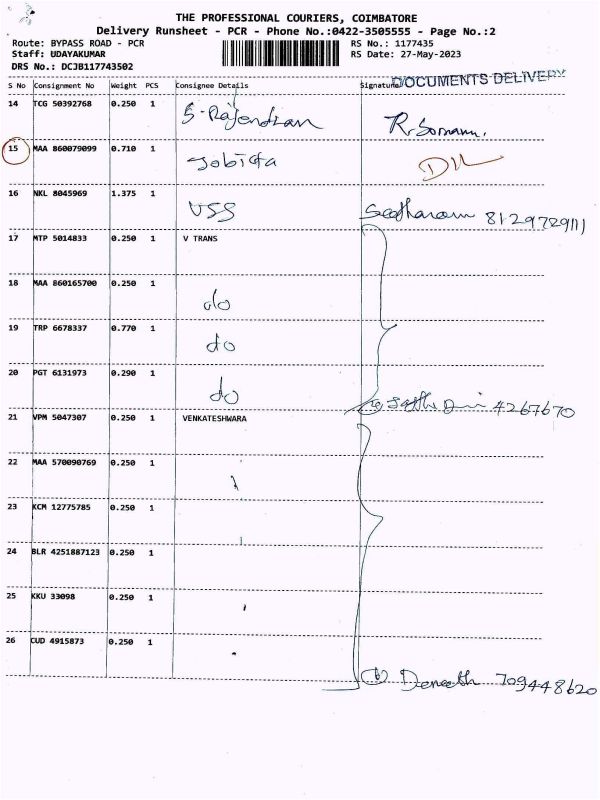 THE PROFESSIONAL COURIERS, COIMBATORE
Delivery Runsheet - PCR - Phone No.:0422-3505555 - Page No.:2
Route: BYPASS ROAD - PCR RS No.: 1177435
Staff: UDAYAKUMAR RS Date: 27-May-2023
DRS No.: DCJB117743502
DOCUMENTS DELIVERY
S No Consignment No Weight PCS Consignee Details Signature
14 TCG 50392768 0.250 1 S-Rajendran
15 MAA 860079099 0.710 1
16 NKL 8045969 1.375 1 VSS Seetharam 8129729111
17 MTP 5014833 0.250 1 V TRANS
18 MAA 860165700 0.250 1 do
19 TRP 6678337 0.770 1 do
20 PGT 6131973 0.290 1 do 4267670
21 VPM 5047307 0.250 1 VENKATESHWARA
22 MAA 570090769 0.250 1
23 KCM 12775785 0.250 1
24 BLR 4251887123 0.250 1
25 KKU 33098 0.250 1
26 CUD 4915873 0.250 1
709448620